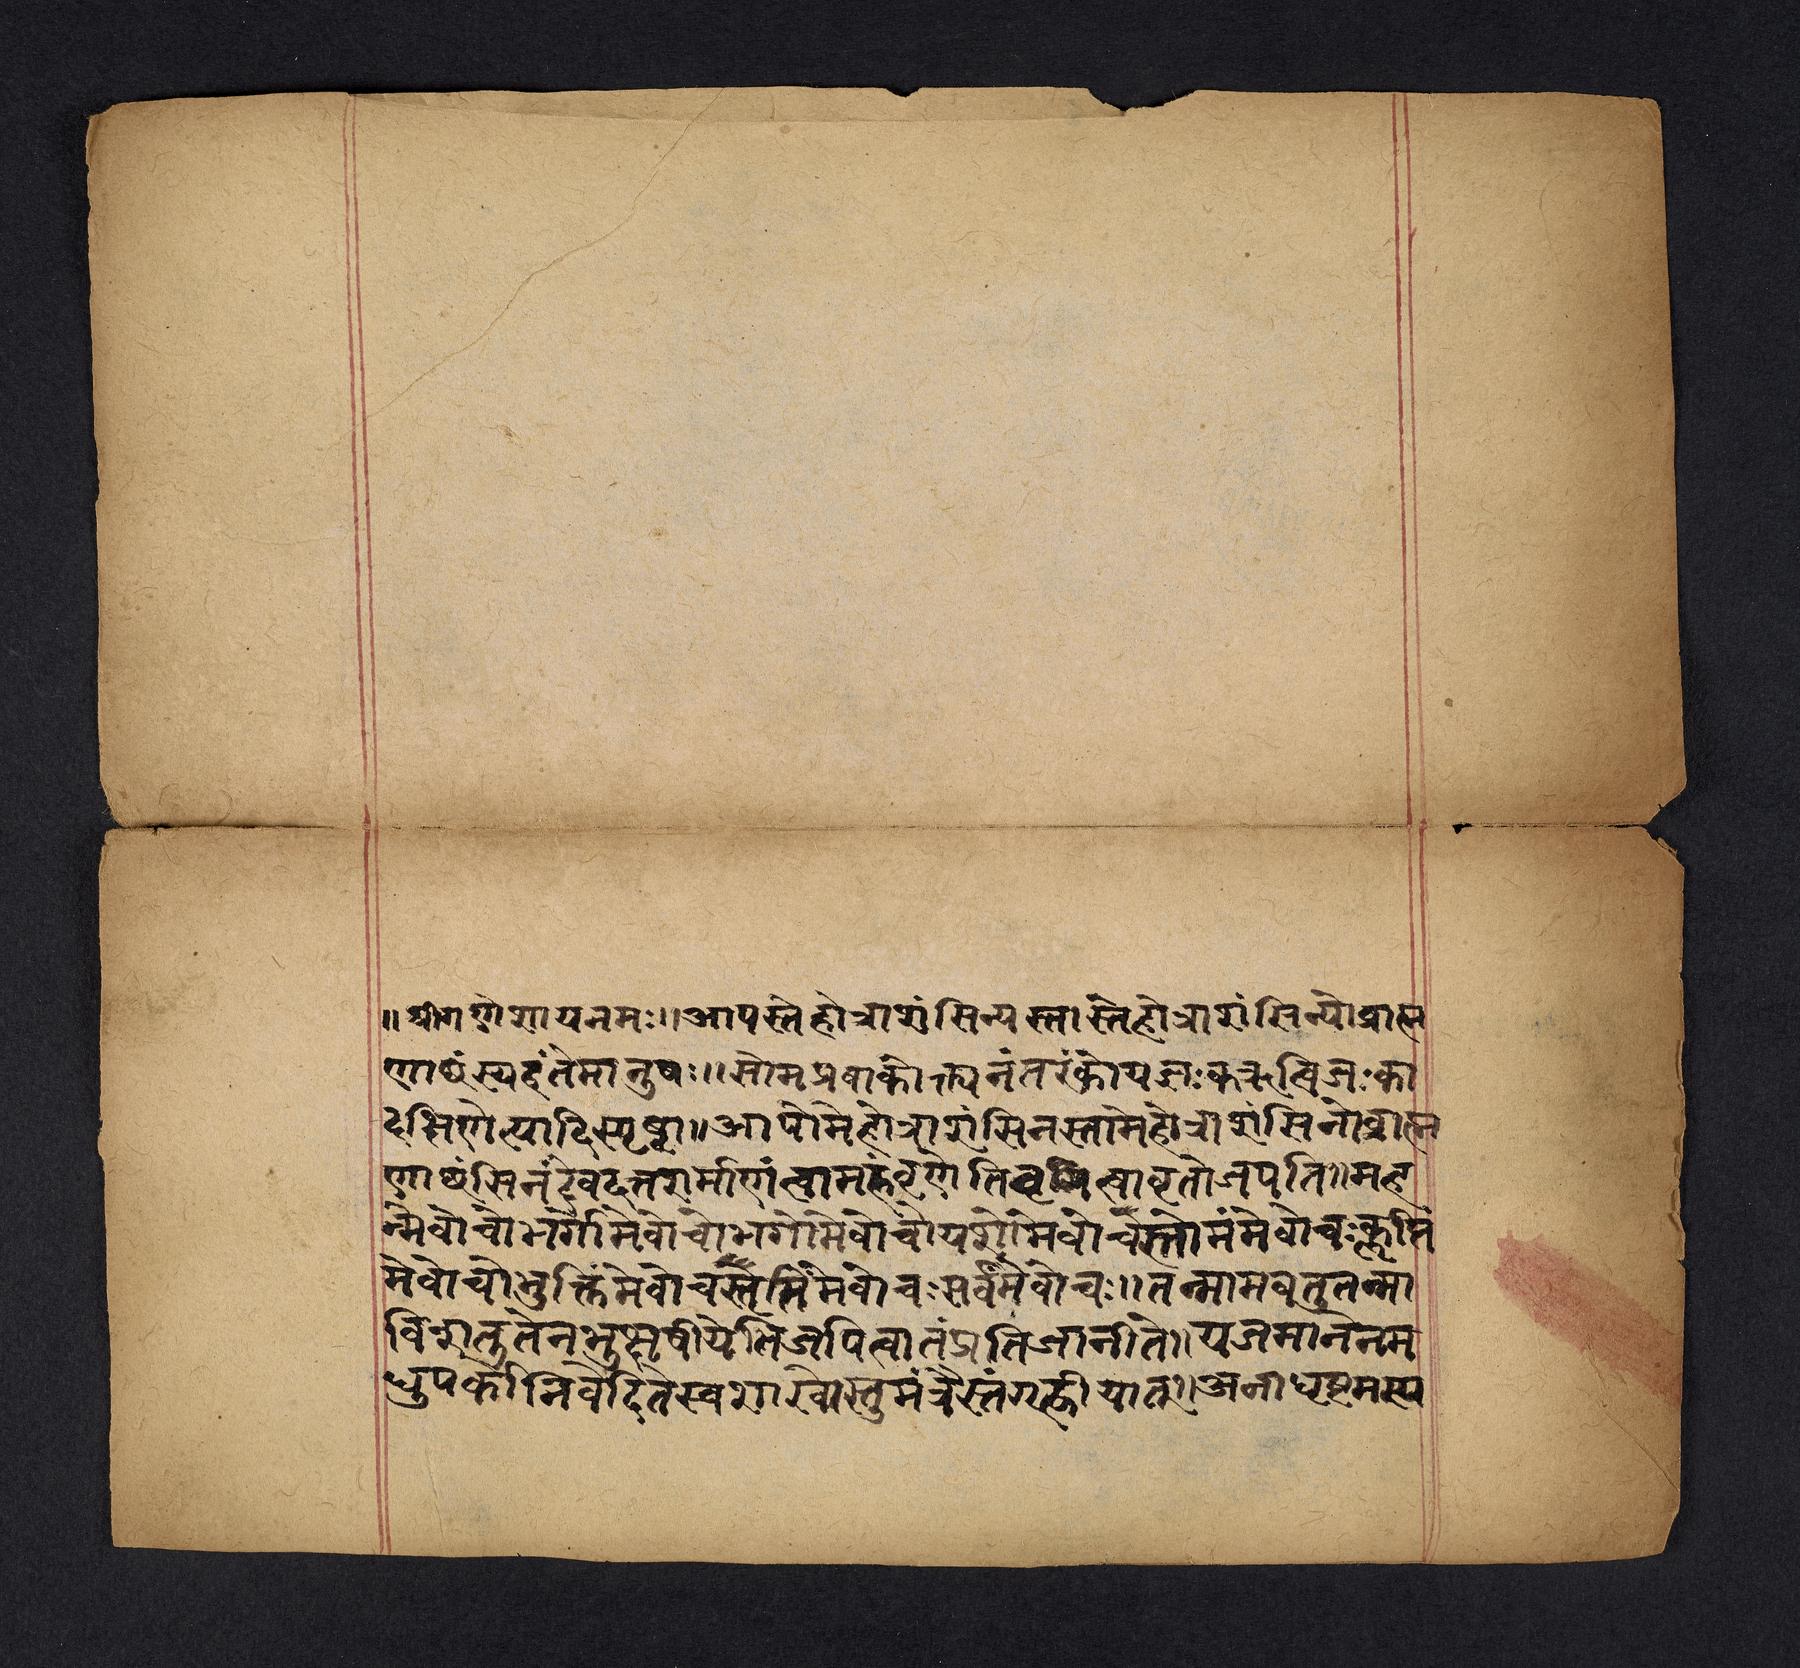 ॥श्रीगणेशायनमः॥आपस्तेहोत्राशंसिन्यस्तास्तेहोत्राशंसिन्योब्राह्म
णाछंस्यहंतेमानुषः॥सोमप्रवाकोक्त्यनंतरंकोयज्ञःकऋत्विजःका
दक्षिणेत्यादिस्पृष्ट्वा॥आपोमेहोत्राशंसिनस्तामेहोत्राशंसिनोब्राह्म
णाछंसिनंदेवदत्तशर्माणंत्वामहंवृणेति त्वावृतोजपति॥मह
न्मेवोचोभर्गोमेवोचोभगोमेवोचोयशोमेवोचस्तोमंमेवोचःकॢप्तिं
मेवोचोभुक्तिंमेवोचस्तृप्तिंमेवोचःसर्वंमेवोचः॥तन्मामवतुतन्मा
विशतुतेनभुक्षिषीयेतिजपित्वातंप्रतिजानीते॥यजमानेनम
धुपर्कोनिवेदितेस्वशाखोस्तुमंत्रैस्तंगृह्णीयात्॥अनाधृष्टमस्य